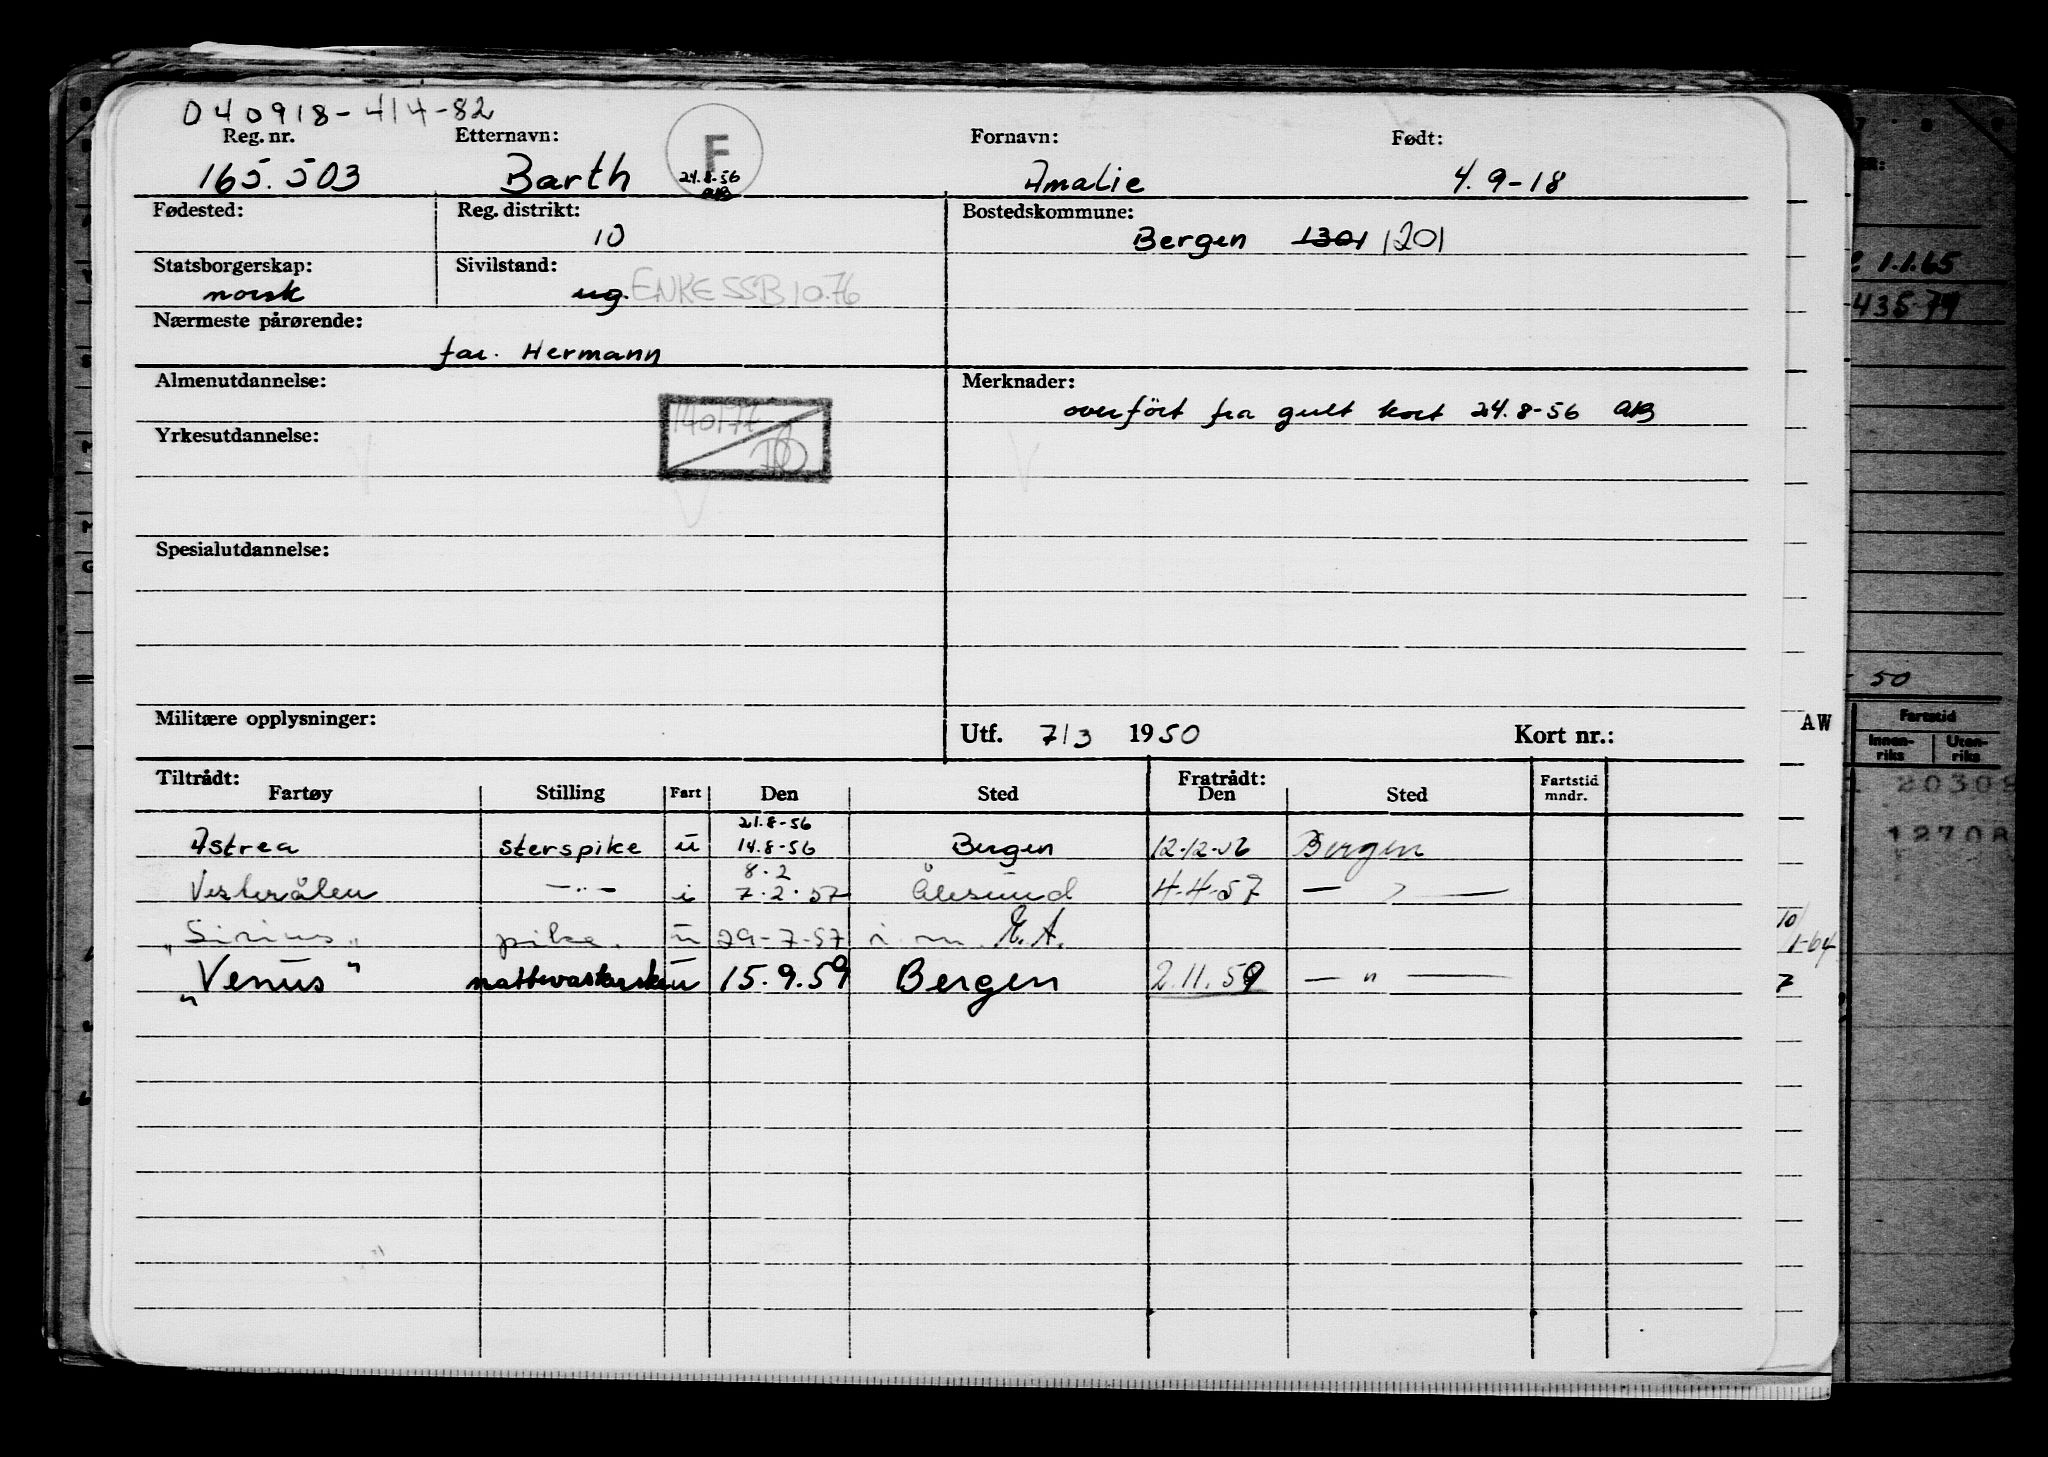 040918-414-82
Reg. nr. Etternavn: F Fornavn: Født:
165.503 Barth 24.8-56 AB Amalie 4. 9-18
Fødested: Reg. distrikt: Bostedskommune:
10 Bergen 1301 1201
Statsborgerskap: Sivilstand:
norsk ug. ENKE SSB 10.76
Nærmeste pårørende:
far. Hermann
Almenutdannelse: Merknader:
overført fra gult kort 24.8-56 AB
Yrkesutdannelse:
Spesialutdannelse:
Militære opplysninger: Utf. 7/3 1950 Kort nr.:
Tiltrådt: Fratrådt:
Fartøy Stilling Fart Den Sted Den Sted Fartstid mndr.
21.8-56
Astrea sterspike u 14.8-56 Bergen 12-12-56 Bergen
8.2
Vesterålen —..— i 7.2.57 Ålesund 4-4-57 — " —
"Sirius" pike. u 29-7-57 i. m. E. A.
"Venus" u 15.9.59 Bergen 2.11.59 — " —
1.1.65
435-79
50
AW
Fartstid
Innen-riks Uten-riks
20308
12708
10/
1-64